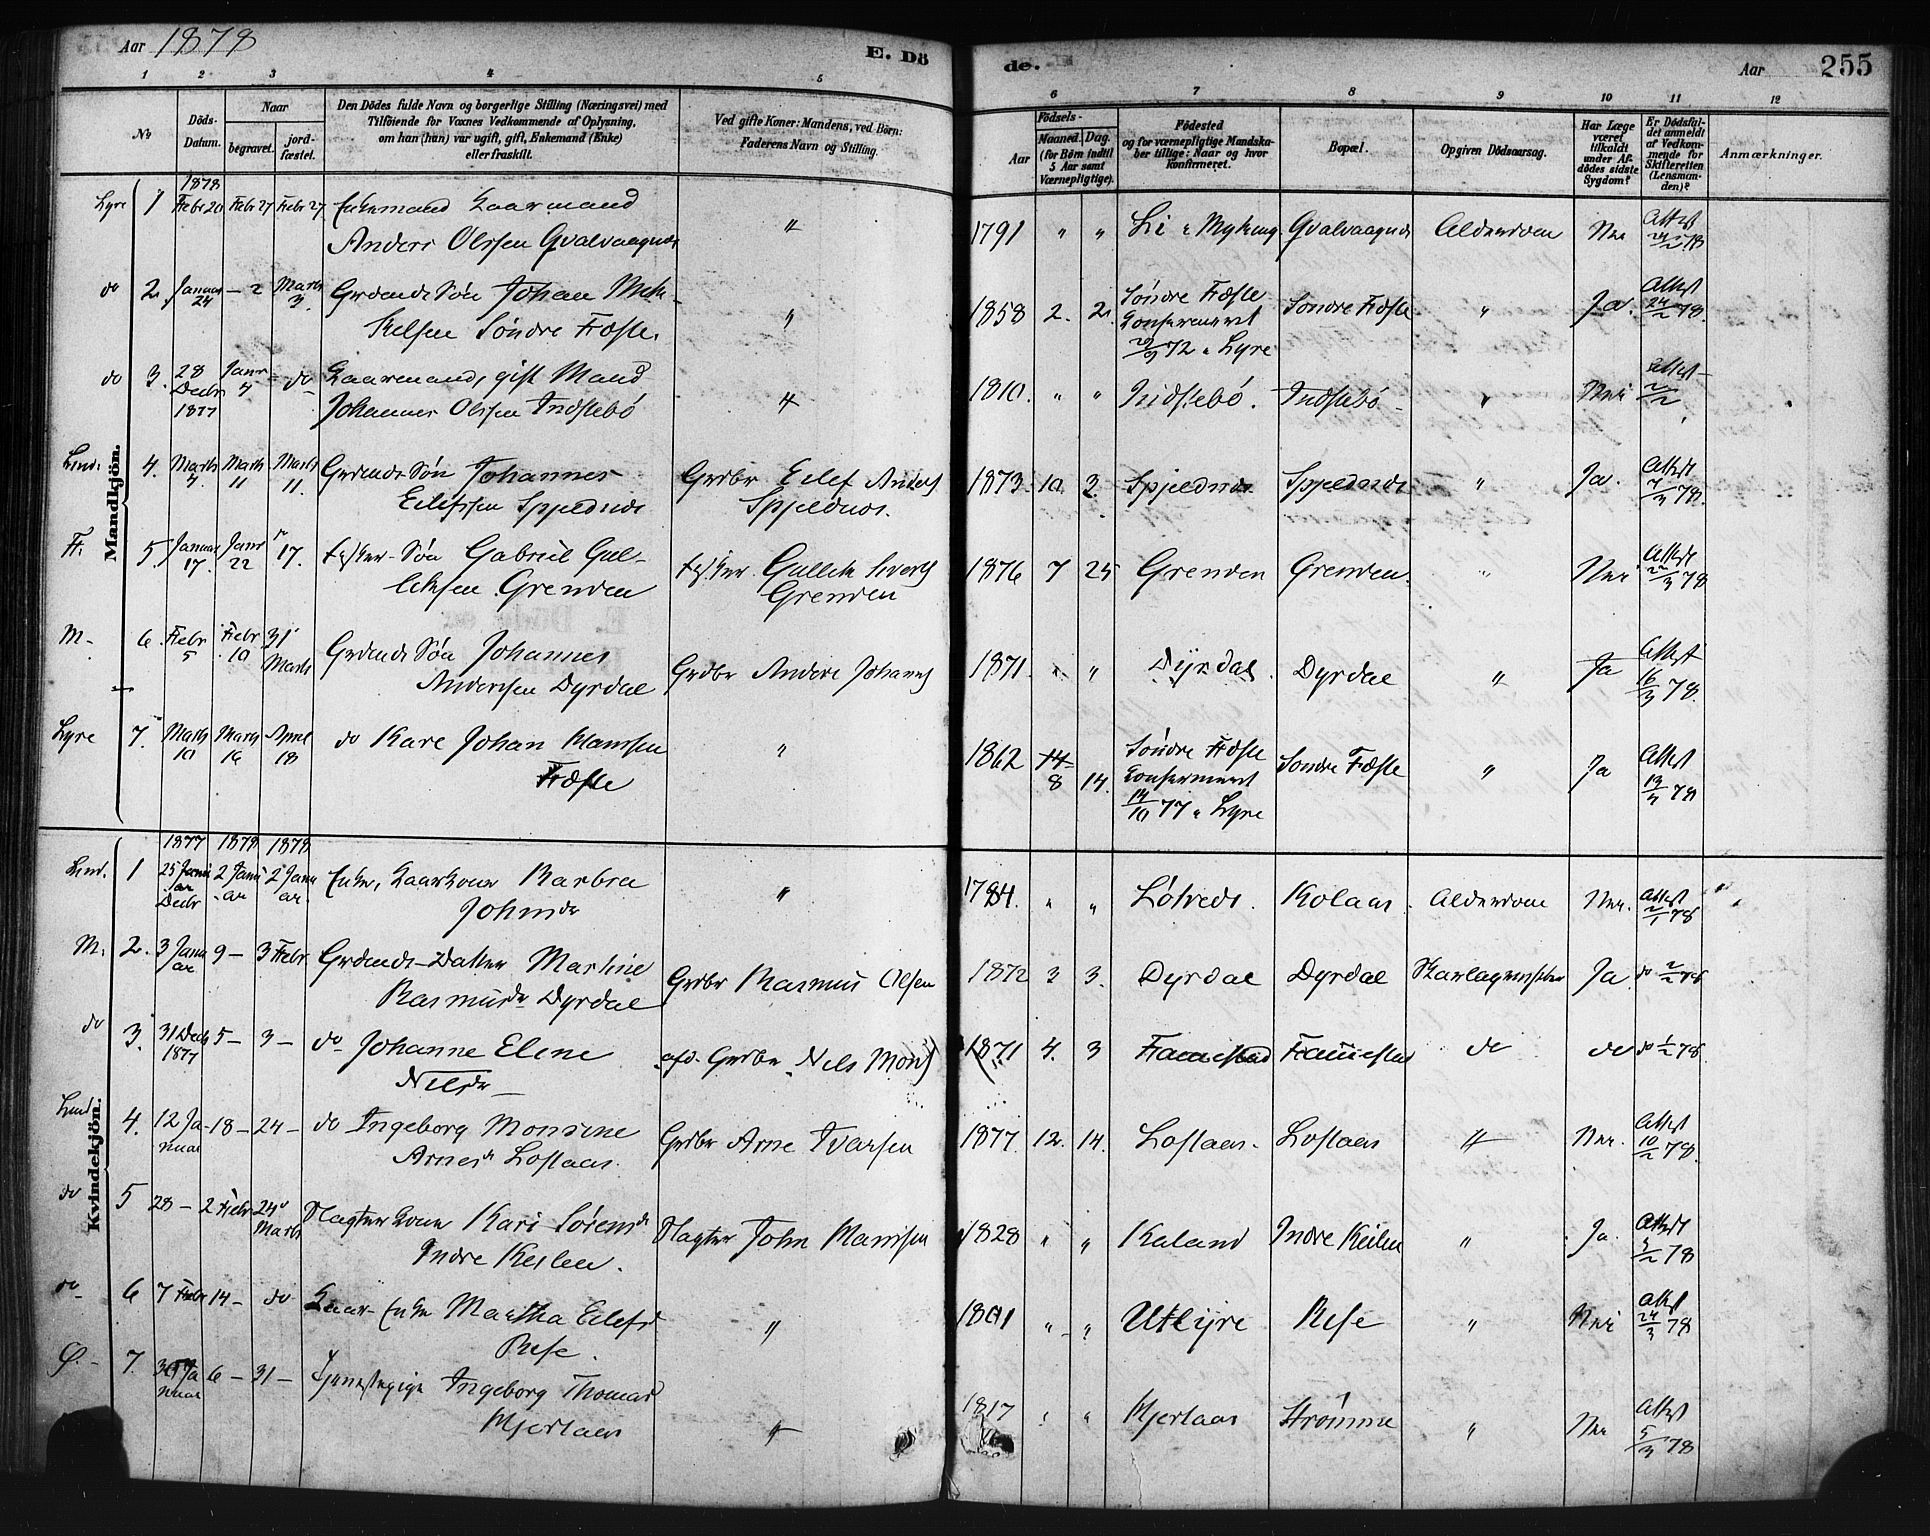 Aar 1878
E. Dö
de.
Aar
255
1 2 3 4 5
6 7 8 9 10 11 12
No
Döds-
Datum.
Naar
begravet.
jord-
fæstet.
Den Dödes fulde Navn og borgerlige Stilling (Næringsvei) med
Tilföiende for Voxnes Vedkommende af Oplysning,
om han (hun) var ugift, gift, Enkemand (Enke)
eller fraskilt.
Ved gifte Koner: Mandens, ved Börn:
Faderens Navn og Stilling.
Födsels-
Aar
Maaned. Dag.
(for Börn indtil
5 Aar samt
Værnepligtige).
Födested
og for værnepligtige Mandska-
ber tillige: Naar og hvor
konfirmeret.
Bopæl.
Opgiven Dödsaarsag.
Har Læge
været
tilkaldt
under Af-
dödes sidste
Sygdom?
Er Dödsfal-
det anmeldt
af Vedkom-
mende for
Skifteretten
(Lensman-
den)?
Anmærkninger.
Mandkjön.
1878
Lyre 1 Febr 20 Febr 27 Febr 27 Enkemand Kaarmand
Anders Olssen Gvalvaagnæs " 1791 " " Li i Myking Gvalvaagnæs Alderdom Nei Attest
24/2 78
do 2. Januar
24 — 2 Marts
3 Grdmds Søn Johan Mik-
kelsen Søndre Fæste. " 1858 2. 2. Søndre Fæste
Konfirmeret
/9 72 i Lyre Søndre Fæste " Ja. Attest
24/2 78.
do 3. 28
Decbr
1877 Janr
4 do Kaarmand, gift Mand
Johannes Olssen Indstebö " 1810. " " Indstebö. Indstebö " Nei Attest
2/2
Lind. 4. Marts
4. Marts
11 Marts
11. Grdmds Søn Johannes
Eilefssen Spjeldnæs Grdbr Eilef Anders
Spjeldnæs. 1873. 10. 3. Spjeldnæs Spjeldnæs " Ja. Attest
7/3 78.
Fr. 5. Januar
17. Janr
22 17. Fisker-Søn Gabriel Gul-
liksen Grenden Fisker Gullik Ivers
Grenden 1876 7 25 Grenden Grenden. " Nei Attest
/3 78
M. 6. Febr
5 Febr
10 31
Marts Grdmds Søn Johannes
Andersen Dyrdal Grdbr Anders Johans 1871. " " Dyrdal. Dyrdal " Ja Attest
16/3 78.
Lyre 7. Marts
10 Marts
16 April
18 do Karl Johan Hansen
Fæste " 1862 14
8 14. Søndre Fæste
Konfirmeret
14/10 77 i Lyre Søndre Fæste " Ja Attest
13/4 78
Kvindekjön.
1877 1878 1878
Lind. 1 25 Janu
ar
Decbr 2 Janu
ar 2 Janu
ar. Enke, Kaarkone Barbra
Johnsdr " 1784. " " Løtveds. Kolaas. Alderdom Nei. Attest
2/1 78
M. 2. 3 Janu
ar 9 — 3 Febr Grdmds-Datter Martine
Rasmusdr Dyrdal Grdbr Rasmus Olsen 1872 3 3. Dyrdal Dyrdal Skarlagensfeber Ja do 2/2 78
do 3. 31 Decb
1877 5 — 3 — do Johanne Elene
Nilsdr afd. Grdbr Nils Mons 1871 4. 3 Fammestad Fammestad do do do 1/2 78.
Lind. 4. 12 Ja-
nuar 18 — 24 — do Ingeborg Monsine
Arnesdr Loftaas. Grdbr Arne Ivarsen 1877. 12. 14. Loftaas. Loftaas " Nei. Attest
10/2 78.
do 5 28 — 2 Febr 24
Marts Slagter Kone Kari Sørensdr
Indre Keilen. Slagter John Hansen 1828 " " Kaland Indre Keilen " Ja. Attest
5/2 78
do 6 7 Febr 14 — do Kaar-Enke Martha Eilefsd
Rise. " 1801 " " Utlyre Rise " Nei Attest
24/3 78
Ø. 7. 30 Ja
nuar 6 — 31 — Tjenestepige Ingeborg Thomasd
Hjertaas " 1817 " " Hjertaas Strömme " Nei Attest
5/3 78